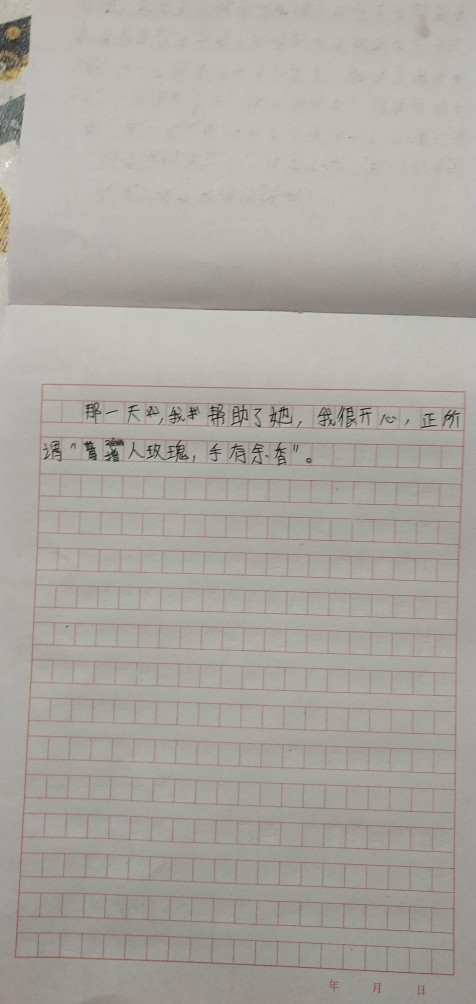 那一天,我帮助了她，我很开心，正所
谓“赠人玫瑰，手有余香”。
年 月 日